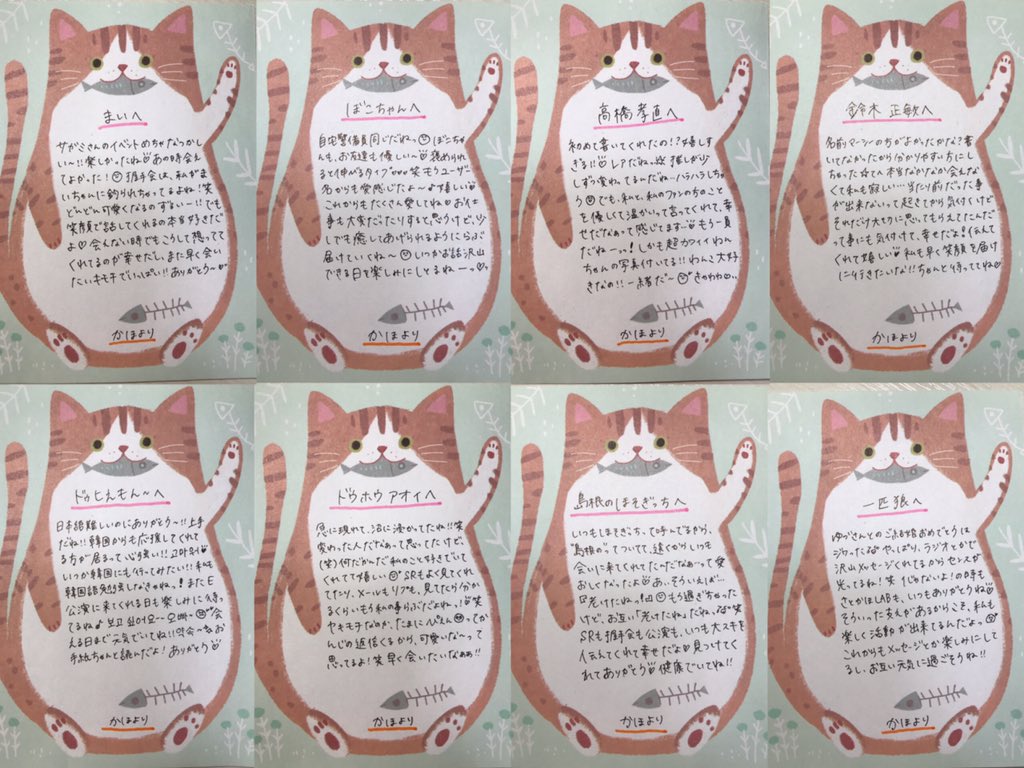 まいへ
サガミさんのイベントめちゃなつかし
い〜!!楽しかったね あの時会え
てよかった! 握手会は、私がま
いちゃんに釣られちゃってるよね!笑
どんどん可愛くなるのずるいー!!でも
笑顔で話してくれるの本当好きだ
よ 会えない時でもこうして想ってて
くれてるのが幸せだし、また早く会い
たいキモチでいっぱい!!ありがとう〜
かほより
ばこちゃんへ
自宅警備員同じだねっ ばこちゃ
んも、お友達も優しい〜 褒められ
ると伸びるタイプ 笑もうユーザ
名からも愛感じたよ〜 嬉しい
これからもたくさん愛してね お仕
事も大変だったりすると思うけど、少
しでも癒してあげられるようにらぶ
届けていくね〜 いつかお話沢山
できる日を楽しみにしとるねーっ
かほより
高橋孝直へ
初めて書いてくれたの!?嬉しす
ぎる!! レアだねっ 推しが少
しずつ変わってるんだね…ハラハラしちゃ
う でも、私と、私のファンの方のこと
を優しくて温かいって言ってくれて、幸
せだなぁって感じてます… もう一員
だねーっ!しかも超カワイイわん
ちゃんの写真付いてる!!わんこ大好
きなの!!一緒だー きゃわわ
かほより
鈴木 正敏へ
名前マーシーの方がよかったかな?書
いてなかったから分かりやすい方にし
ちゃった☆てへ 本当なかなか会えな
くて私も寂しい…当たり前だった事
が出来ないって起きてから気付くけど
それだけ大切に思ってもらえてたんだ
って事にも気付けて、幸せだよ!伝えて
くれて嬉しい 私も早く笑顔を届け
に行きたいな!!ちゃんと待っててね
かほより
ドゥヒえもん〜へ
日本語難しいのにありがとう〜!!上手
だね!!韓国からもだ推してくれて
る方が居るって心強い!!고마워
いつか韓国にも行ってみたい!!私も
韓国語勉強しなきゃねっ またE
公演に来てくれる日も楽しみに待っ
てるね 보고 싶어요〜오빠〜 会
える日まで元気でいてね!!약속〜 お
手紙ちゃんと読んだよ!ありがとう
かほより
ドゥホウ アオイへ
急に現れて、沼に浸かってたね!!笑
変わった人だなぁって思ってたけど、
(笑)何だかんだ私のこと好きでいて
くれてて嬉しい SRもよく見てくれ
ててンリ、メールもリプも、見てたら分か
るくらいもう私の事らぶだよねっ! 笑
ヤキモチなのか、たまにぴえん ってか
んじの返信くるから、可愛いな〜って
思ってるよ!笑早く会いたいなぁぁ!!
かほより
島根のほそぎっちへ
いつもほそぎっちって呼んでるから、
"島根の"てついてて、遠くからいつも
会いに来てくれてたのへだなぁって愛
おしくなったよ あ、そういえば…
『老けたねっ』 もう過ぎちゃった
けど、お互い『老けたね』だねっ 笑
SRも握手会も公演も、いつも大スキを
伝えてくれて幸せだよ 見つけてく
れてありがとう 健康でいてね!!
かほより
一匹狼へ
ゆづさんとのご結婚おめでとうは
ジワッたな やっぱり、ラジオとかで
沢山メッセージくれてるからセンスが
光ってるね!笑 「じゃないよ!」の時も
さとかほLABも、いつもありがとうね
そういった支えがあるからこそ、私も
楽しく活動が出来てるんだよっ
これからもメッセージとか楽しみにして
るし、お互い元気に過ごそうね!!
かほより